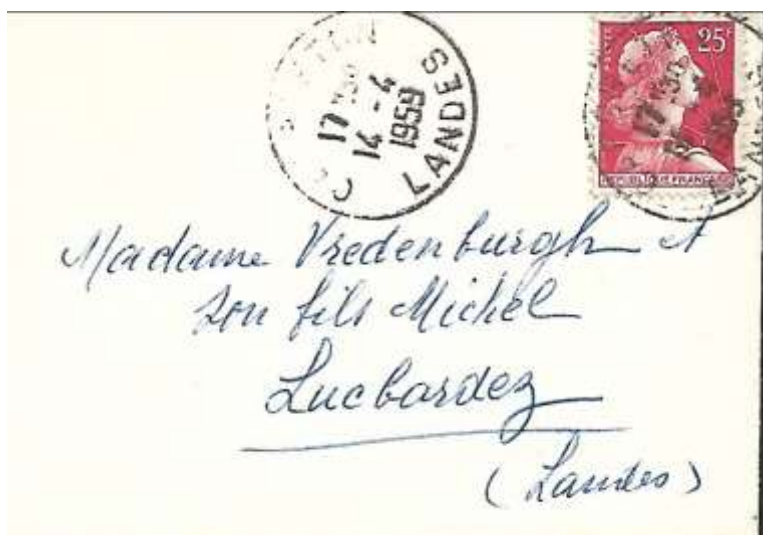 17 30
14 - 4
1959
LANDES
POSTE
25F
REPUBLIQUE FRANÇAISE
Madame Vredenburgh et
son fils Michel
Lucbardez
(Landes)